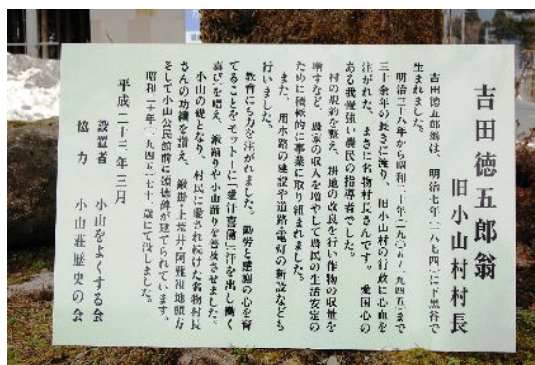 吉田徳五郎翁
旧小山村村長
吉田徳五郎翁は、明治七年(一八七四)に下黒谷で
生まれました。
明治三十八年から昭和二十年(一九〇五~一九四五)まで
三十余年の長きに渡り、旧小山村の行政に心血を
注がれた、まさに名物村長さんです。愛国心の
ある我慢強い農民の指導者でした。
村の規約を整え、耕地の改良を行い作物の収量を
増すなど、農家の収入を増やして農民の生活安定の
ために積極的に事業に取り組まれました。
また、用水路の建設や道路・電灯の新設なども
行いました。
教育にも力を注がれました。勤労と感謝の心を育
てることをモットーに「愛汗喜働」汗を出し働く
喜び)を唱え、 踊りや小山踊りを普及させました。
小山の礎となり、村民に愛され続けた名物村長
さんの功績を讃え、 上荒井・阿難祖地頭方
そして小山公民館前に頌徳碑が建てられています。
昭和二十年(一九四五)七十一歳にて没しました。
平成二十三年三月
設置者 小山をよくする会
協力 小山荘歴史の会